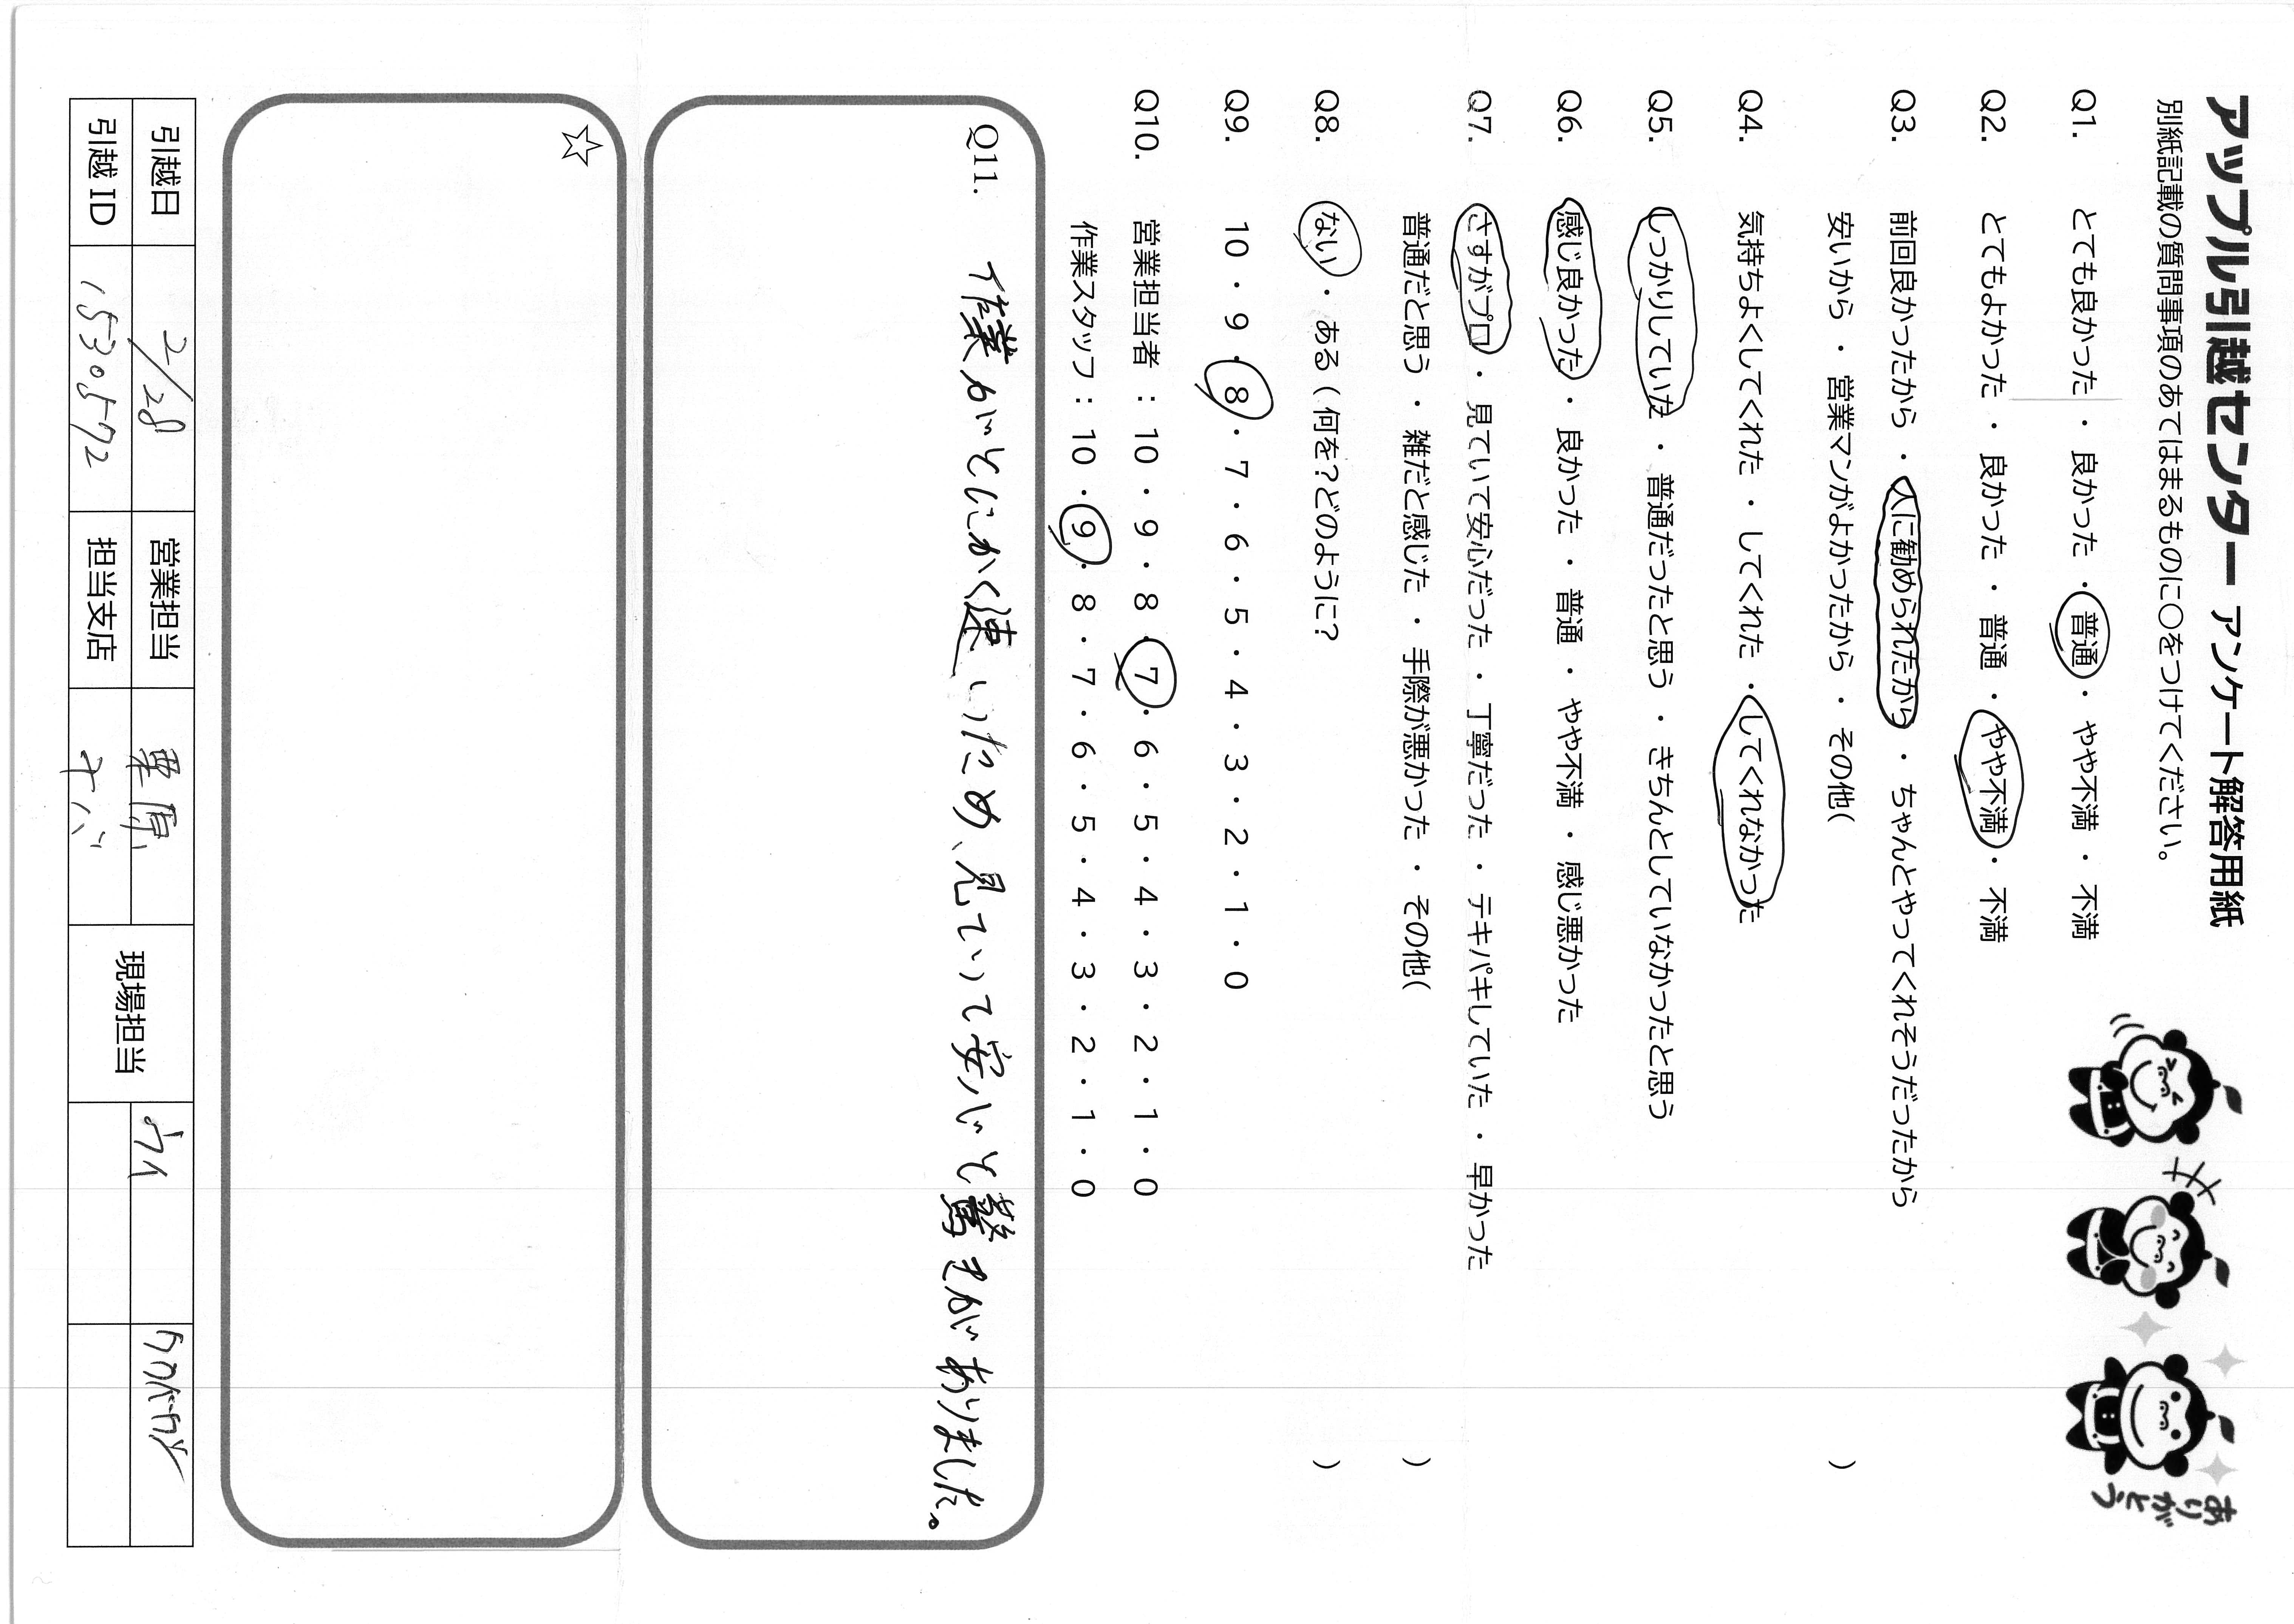 アップル引越センター アンケート解答用紙
別紙記載の質問事項のあてはまるものに○をつけてください。
Q1. とても良かった ・ 良かった ・ 普通 ・ やや不満 ・ 不満
Q2. とてもよかった ・ 良かった ・ 普通 ・ やや不満 ・ 不満
Q3. 前回良かったから ・ 人に勧められたから ・ ちゃんとやってくれそうだったから
安いから ・ 営業マンがよかったから ・ その他( )
Q4. 気持ちよくしてくれた ・ してくれた ・ してくれなかった
Q5. しっかりしていた ・ 普通だったと思う ・ きちんとしていなかったと思う
Q6. 感じ良かった ・ 良かった ・ 普通 ・ やや不満 ・ 感じ悪かった
Q7. さすがプロ ・ 見ていて安心だった ・ 丁寧だった ・ テキパキしていた ・ 早かった
普通だと思う ・ 雑だと感じた ・ 手際が悪かった ・ その他( )
Q8. ない ・ ある ( 何を?どのように? )
Q9. 10 ・ 9 ・ 8 ・ 7 ・ 6 ・ 5 ・ 4 ・ 3 ・ 2 ・ 1 ・ 0
Q10. 営業担当者 : 10 ・ 9 ・ 8 ・ 7 ・ 6 ・ 5 ・ 4 ・ 3 ・ 2 ・ 1 ・ 0
作業スタッフ : 10 ・ 9 ・ 8 ・ 7 ・ 6 ・ 5 ・ 4 ・ 3 ・ 2 ・ 1 ・ 0
Q11. 作業がとにかく速いったため、見ていって安心と驚きがありました。
☆
引越日 2/28 営業担当 栗原 現場担当
引越 ID 1530572 担当支店 千八
ありがとう